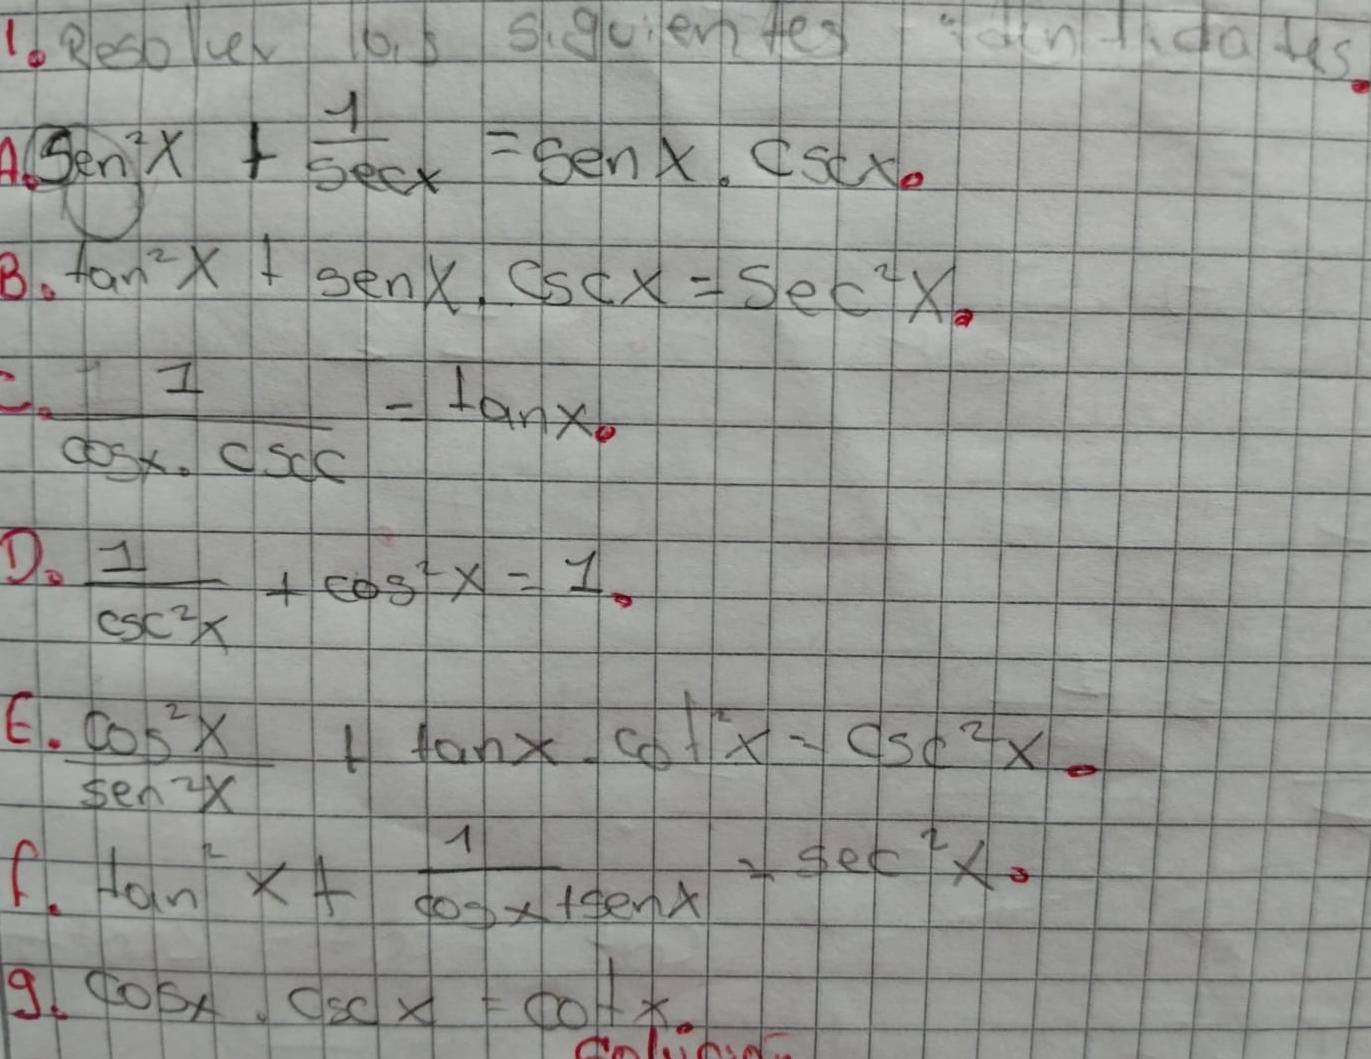 1. Resolver las siguientes identidades.
A. Sen²x + 1/secx = senx . cscx.
B. tan²x + senx . cscx = Sec²x.
C. 1/cosx. cscc = tanx.
D. 1/csc²x + cos²x = 1.
E. cos²x/sen²x + tanx . cot²x = csc²x.
f. tan²x + 1/cosx+senx = sec²x.
g. cosx . cscx = cotx.
Solución